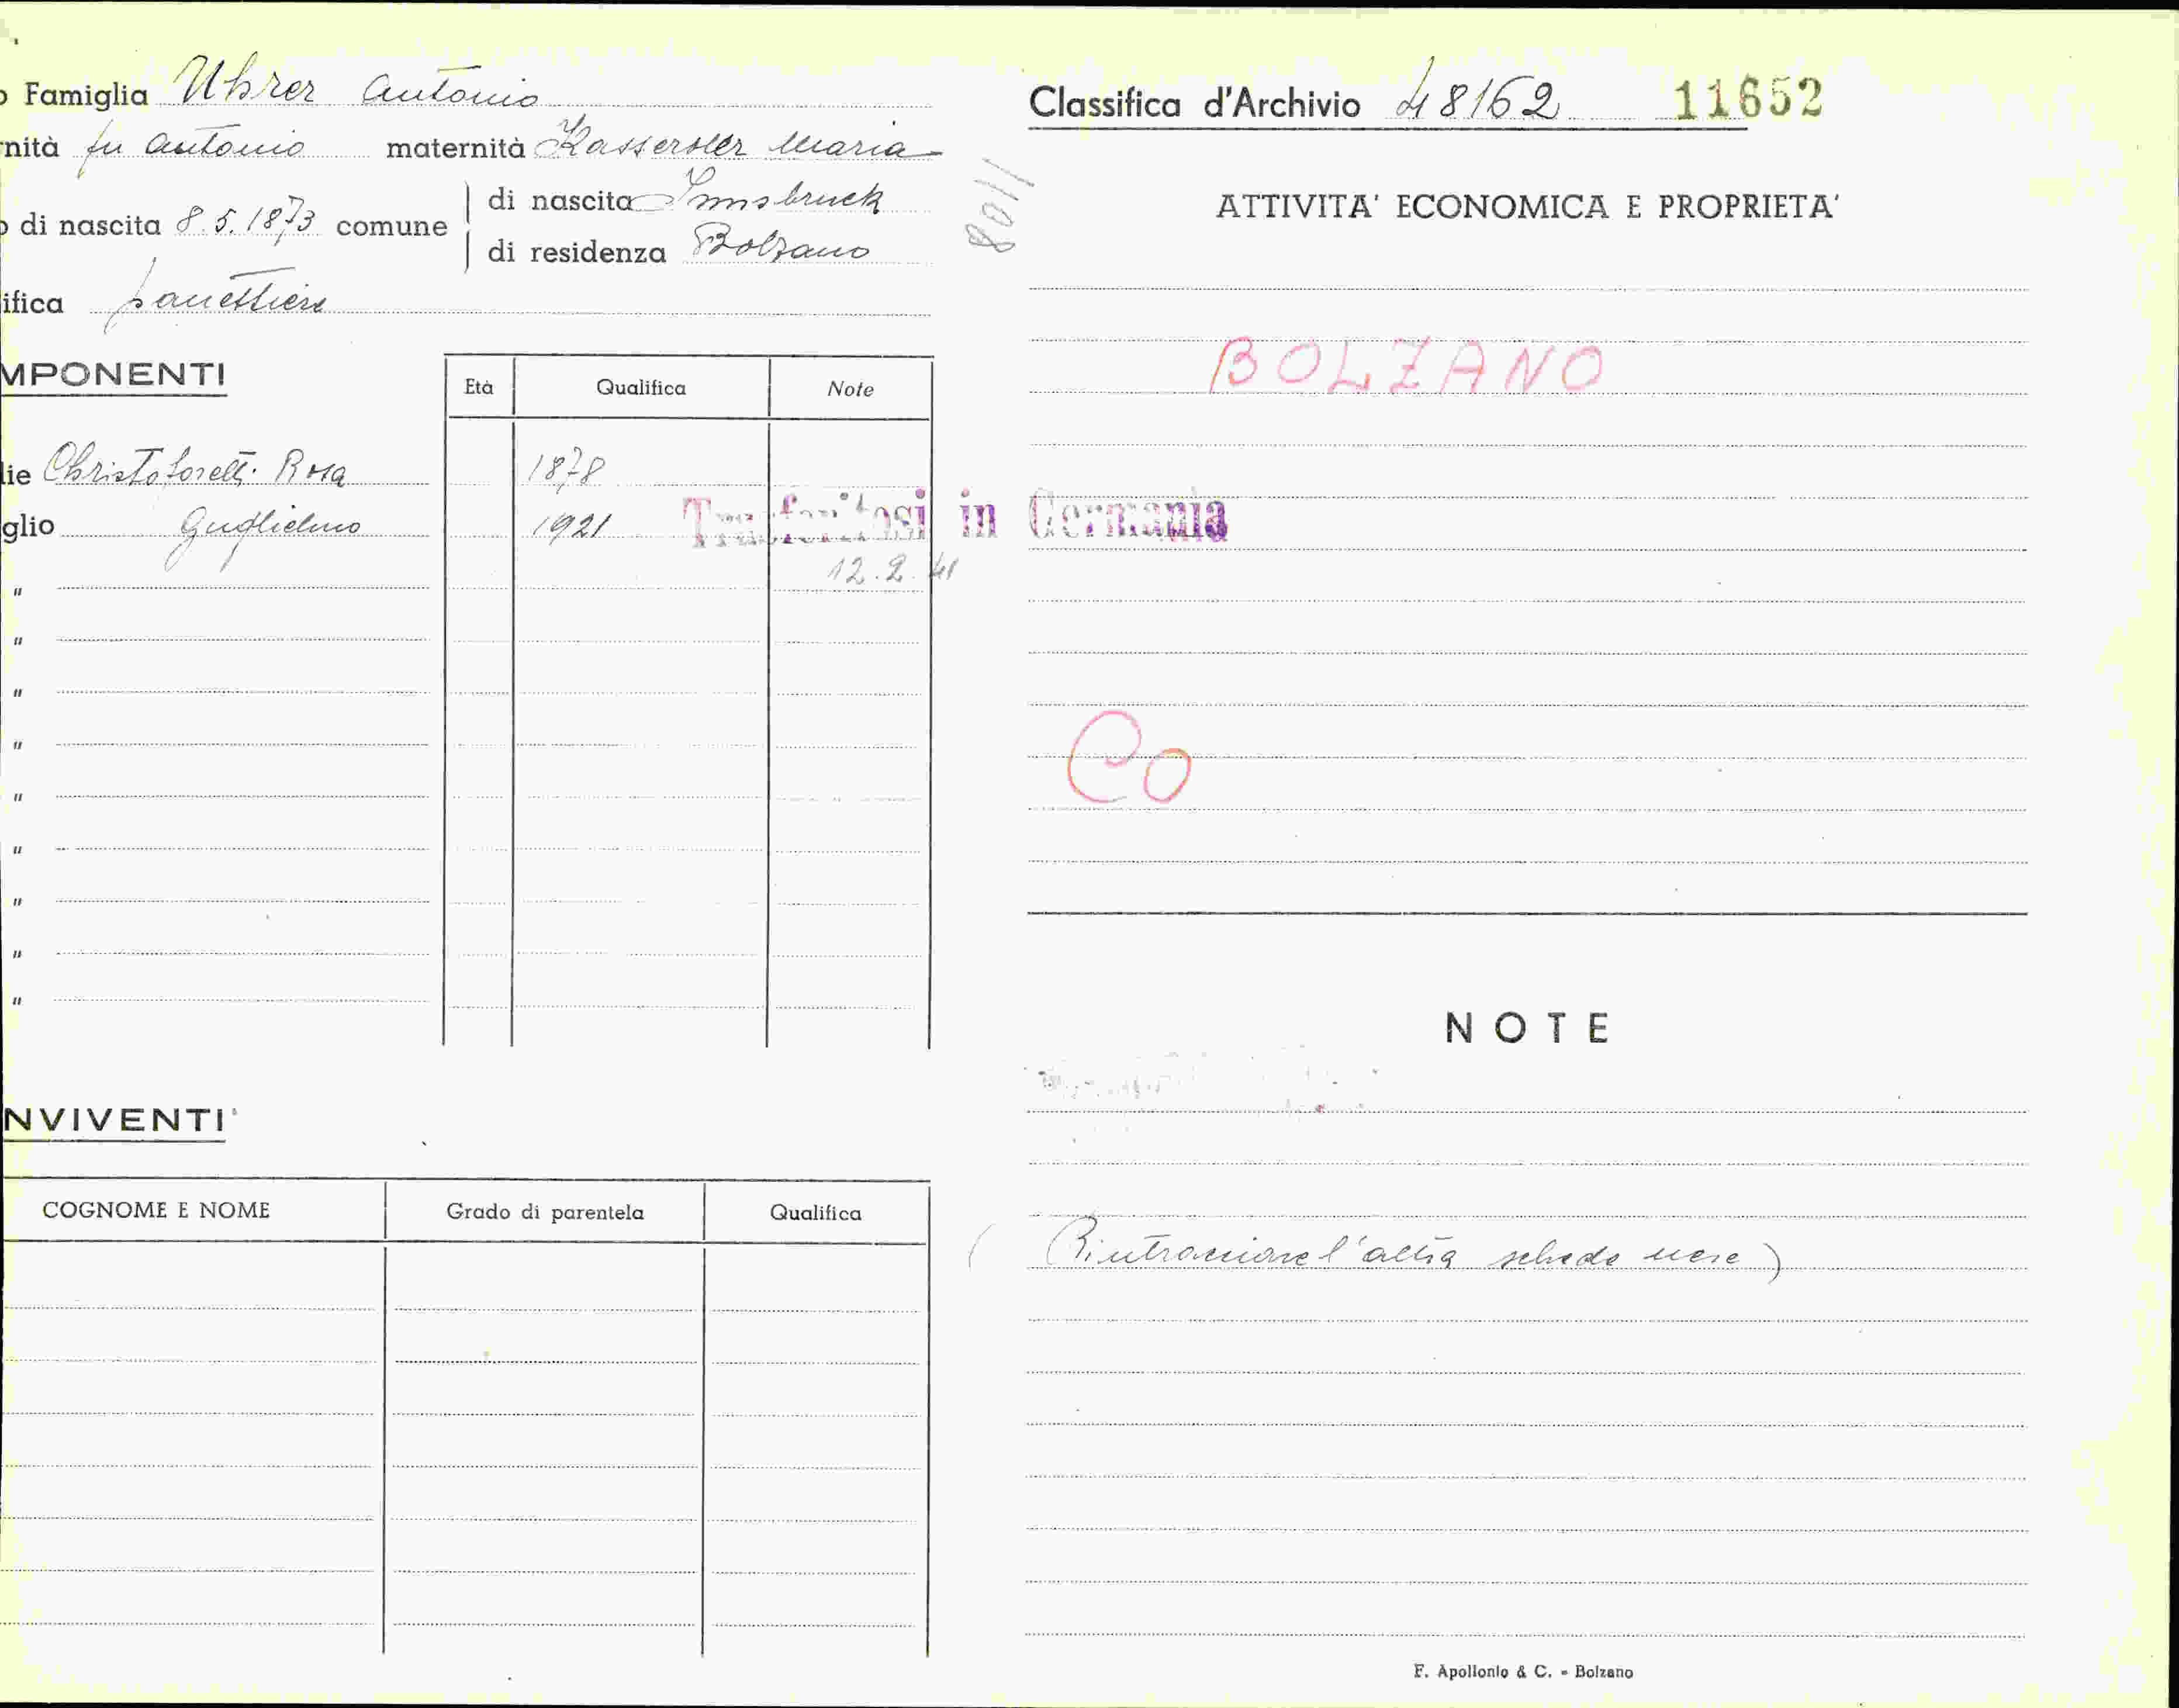 o Famiglia Uhrer Antonio
nità fu Antonio maternità Kasseroler Maria
o di nascita 8.5.1873 comune
di nascita Innsbruck
di residenza Bolzano
ifica panettiere
MPONENTI
Età Qualifica Note
lie Christoforetti Rosa 1878
glio Guglielmo 1921
Trasferitosi in Germania
12.2.41
"
"
"
"
"
"
"
"
"
NVIVENTI
COGNOME E NOME Grado di parentela Qualifica
Classifica d'Archivio 48162 11652
8011
ATTIVITA' ECONOMICA E PROPRIETA'
BOLZANO
Co
NOTE
l'altra scheda
F. Apollonio & C. - Bolzano